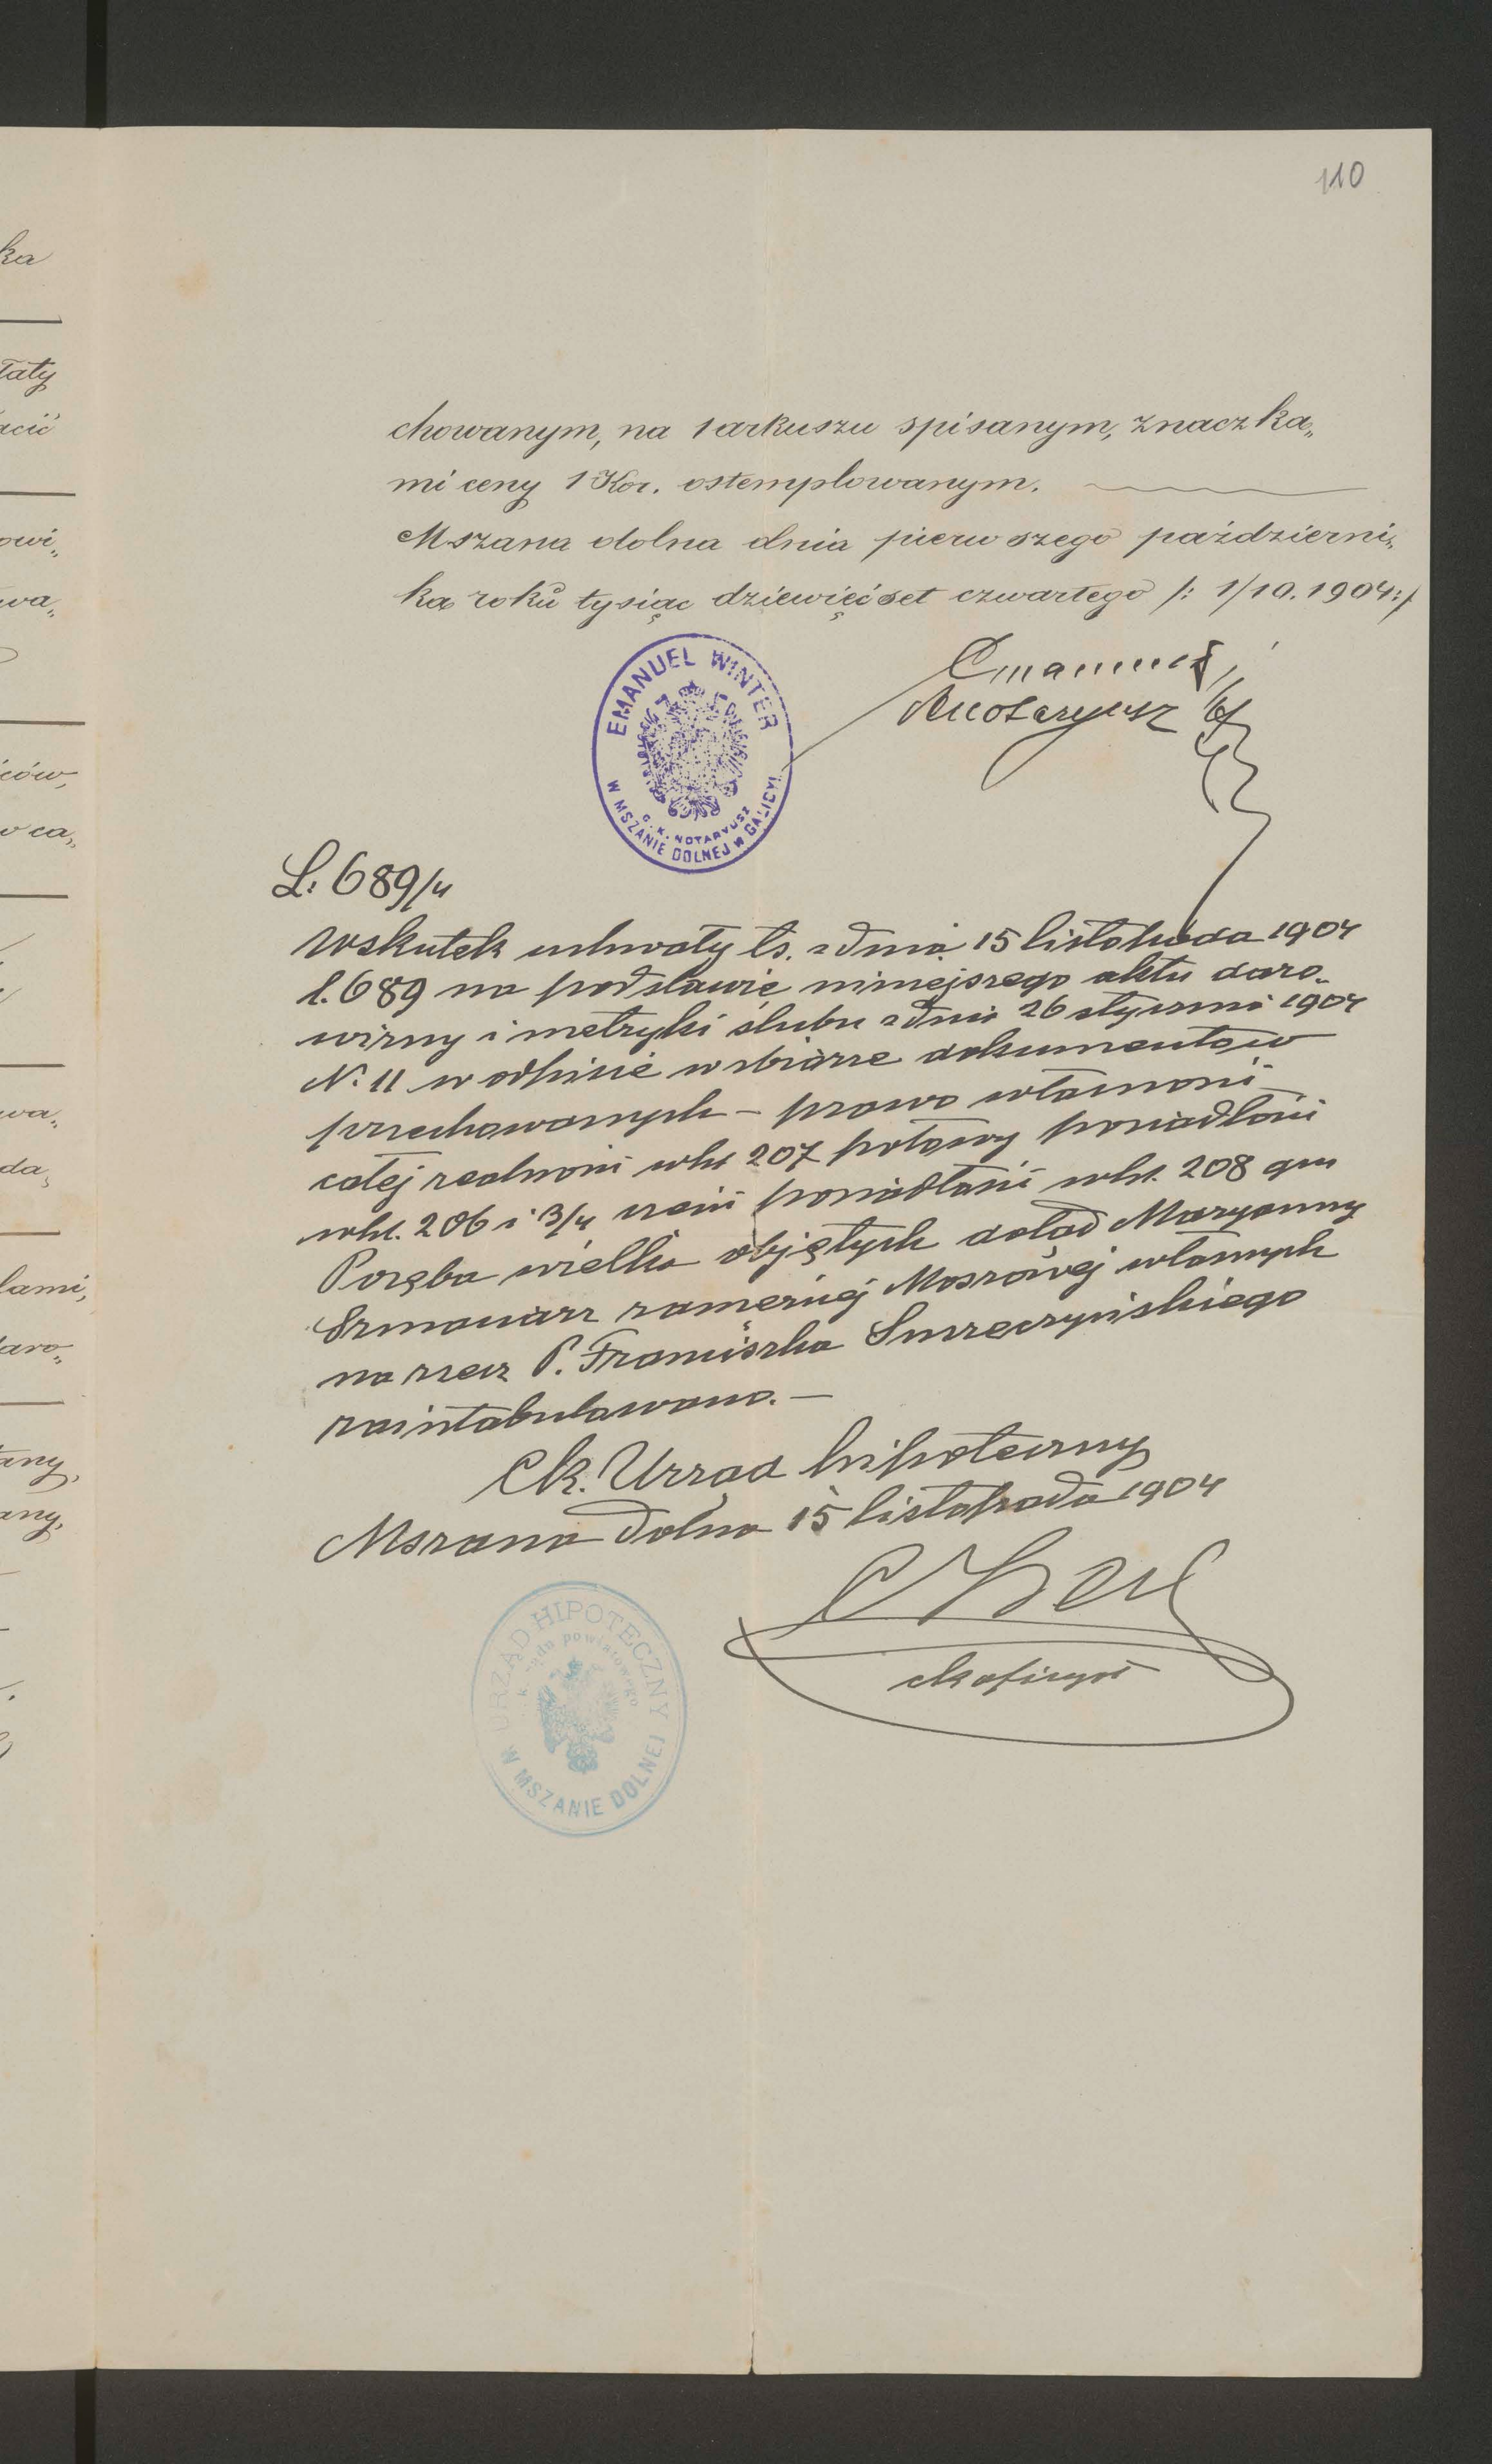 110
ka
łaty
acić
owi„
wa„
ców,
w ca„
wa„
da„
lami,
daro„
any,
any,
chowanym, na 1 arkuszu spisanym, znaczka„
mi ceny 1 Kor. ostemplowanym.
Mszana dolna dnia pierwszego październi„
ka roku tysiąc dziewięćset czwartego /: 1/10. 1904:/
Emanuel
Notaryusz
EMANUEL WINTER
C. K. NOTARYUSZ
W MSZANIE DOLNEJ W GALICYI
L: 689/4
Wskutek uchwały ts. z dnia 15 listopada 1904
l. 689 na podstawie niniejszego aktu daro„
wizny i metryki ślubu z dnia 26 stycznia 1904
N. 11 w odpisie w zbiorze dokumentów
przechowanych – prawo własności
całej realności whl 207 połowy posiadłości
whl. 206 i 3/4 części posiadłości whl. 208 gm
Poręba wielka objętych dotąd Maryanny
Szmaciarz zamężnej Moszowej własnych
na rzecz P. Franciszka Smreczyńskiego
zaintabulowano. –
Ck. Urząd hipoteczny
Mszana dolna 15 listopada 1904
ck oficyał
URZĄD HIPOTECZNY
k. sądu powiatowego
W MSZANIE DOLNEJ